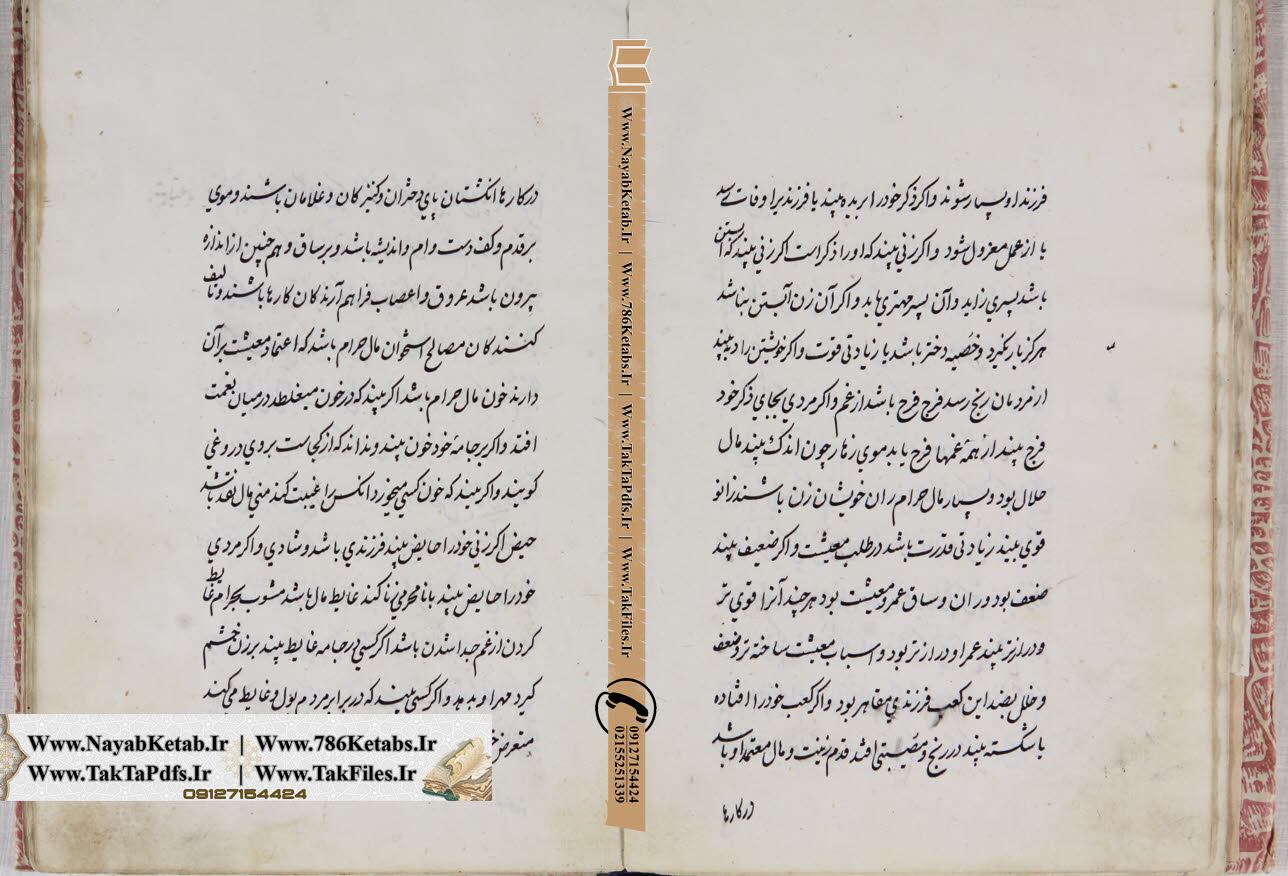 فرزند او بسیار شوند و اکر ذکر خود را بریده بیند یا فرزند یرا وفات رسد
یا از عمل معزول شود و اکر زنی بیند که او را ذکر است اکر زنی بیند که آبستن
باشد پسری زاید و آن پسر مهتری یابد و اکر آن زن آبستن نباشد
هرکز بار نکیرد و خصیه دختر باشد یا زیادتی قوت و اکر خویشتن را دبه بیند
از مردمان رنج رسد فرج فرح باشد از غم و اکر مردی بجای ذکر خود
فرج بیند از همه غمها فرح یابد موی زهار چون اندک بیند مال
حلال بود و بسیار مال حرام ران خویشان زن باشند زانو
قوی بیند زیادتی قدرت باشد در طلب معیشت و اکر ضعیف بیند
ضعف بود و ران و ساق عمر و معیشت بود هر چند آنرا قوی تر
و درازتر بیند عمر او درازتر بود و اسباب معیشت ساخته تر و ضعف
و خلل بضد این کعب فرزندی مقامر بود و اکر کعب خود را افتاده
یا شکسته بیند در رنج و مصیبتی افتد قدم زینت و مال معتمد او باشد
در کارها
در کارها انکشتان پای دختران و کنیزکان و غلامان باشند و موی
بر قدم و کف دست وام و اندیشه باشد و بر ساق و هم چنین از اندازه
بیرون باشد عروق و اعصاب فراهم آرندکان کارها باشند و تالیف
کنندکان مصالح استخوان مال حرام باشد که اعتماد معیشت بر آن
دارند خون مال حرام باشد اکر بیند که در خون میغلطد در میان نعمت
افتد و اکر بر جامه خود خون بیند و نداند که از کجاست بر وی دروغی
کویند و اکر بیند که خون کسی میخورد انکس را غیبت کند منی مال نقد باشد
حیض اکر زنی خود را حایض بیند فرزندی باشد و شادی و اکر مردی
خود را حایض بیند با نامحرمی زنا کند غایط مال باشد مشوب بحرام غایط
کردن از غم جدا شدن باشد اکر کسی در جامه غایط بیند بر زن خشم
کیرد مهر او بدهد و اکر کسی بیند که در برابر مردم بول و غایط می کند
متعرض
Www.NayabKetab.Ir | Www.786Ketabs.Ir | Www.TakTaPdfs.Ir | Www.TakFiles.Ir
09127154424
02155251339
Www.NayabKetab.Ir | Www.786Ketabs.Ir
Www.TakTaPdfs.Ir | Www.TakFiles.Ir
09127154424